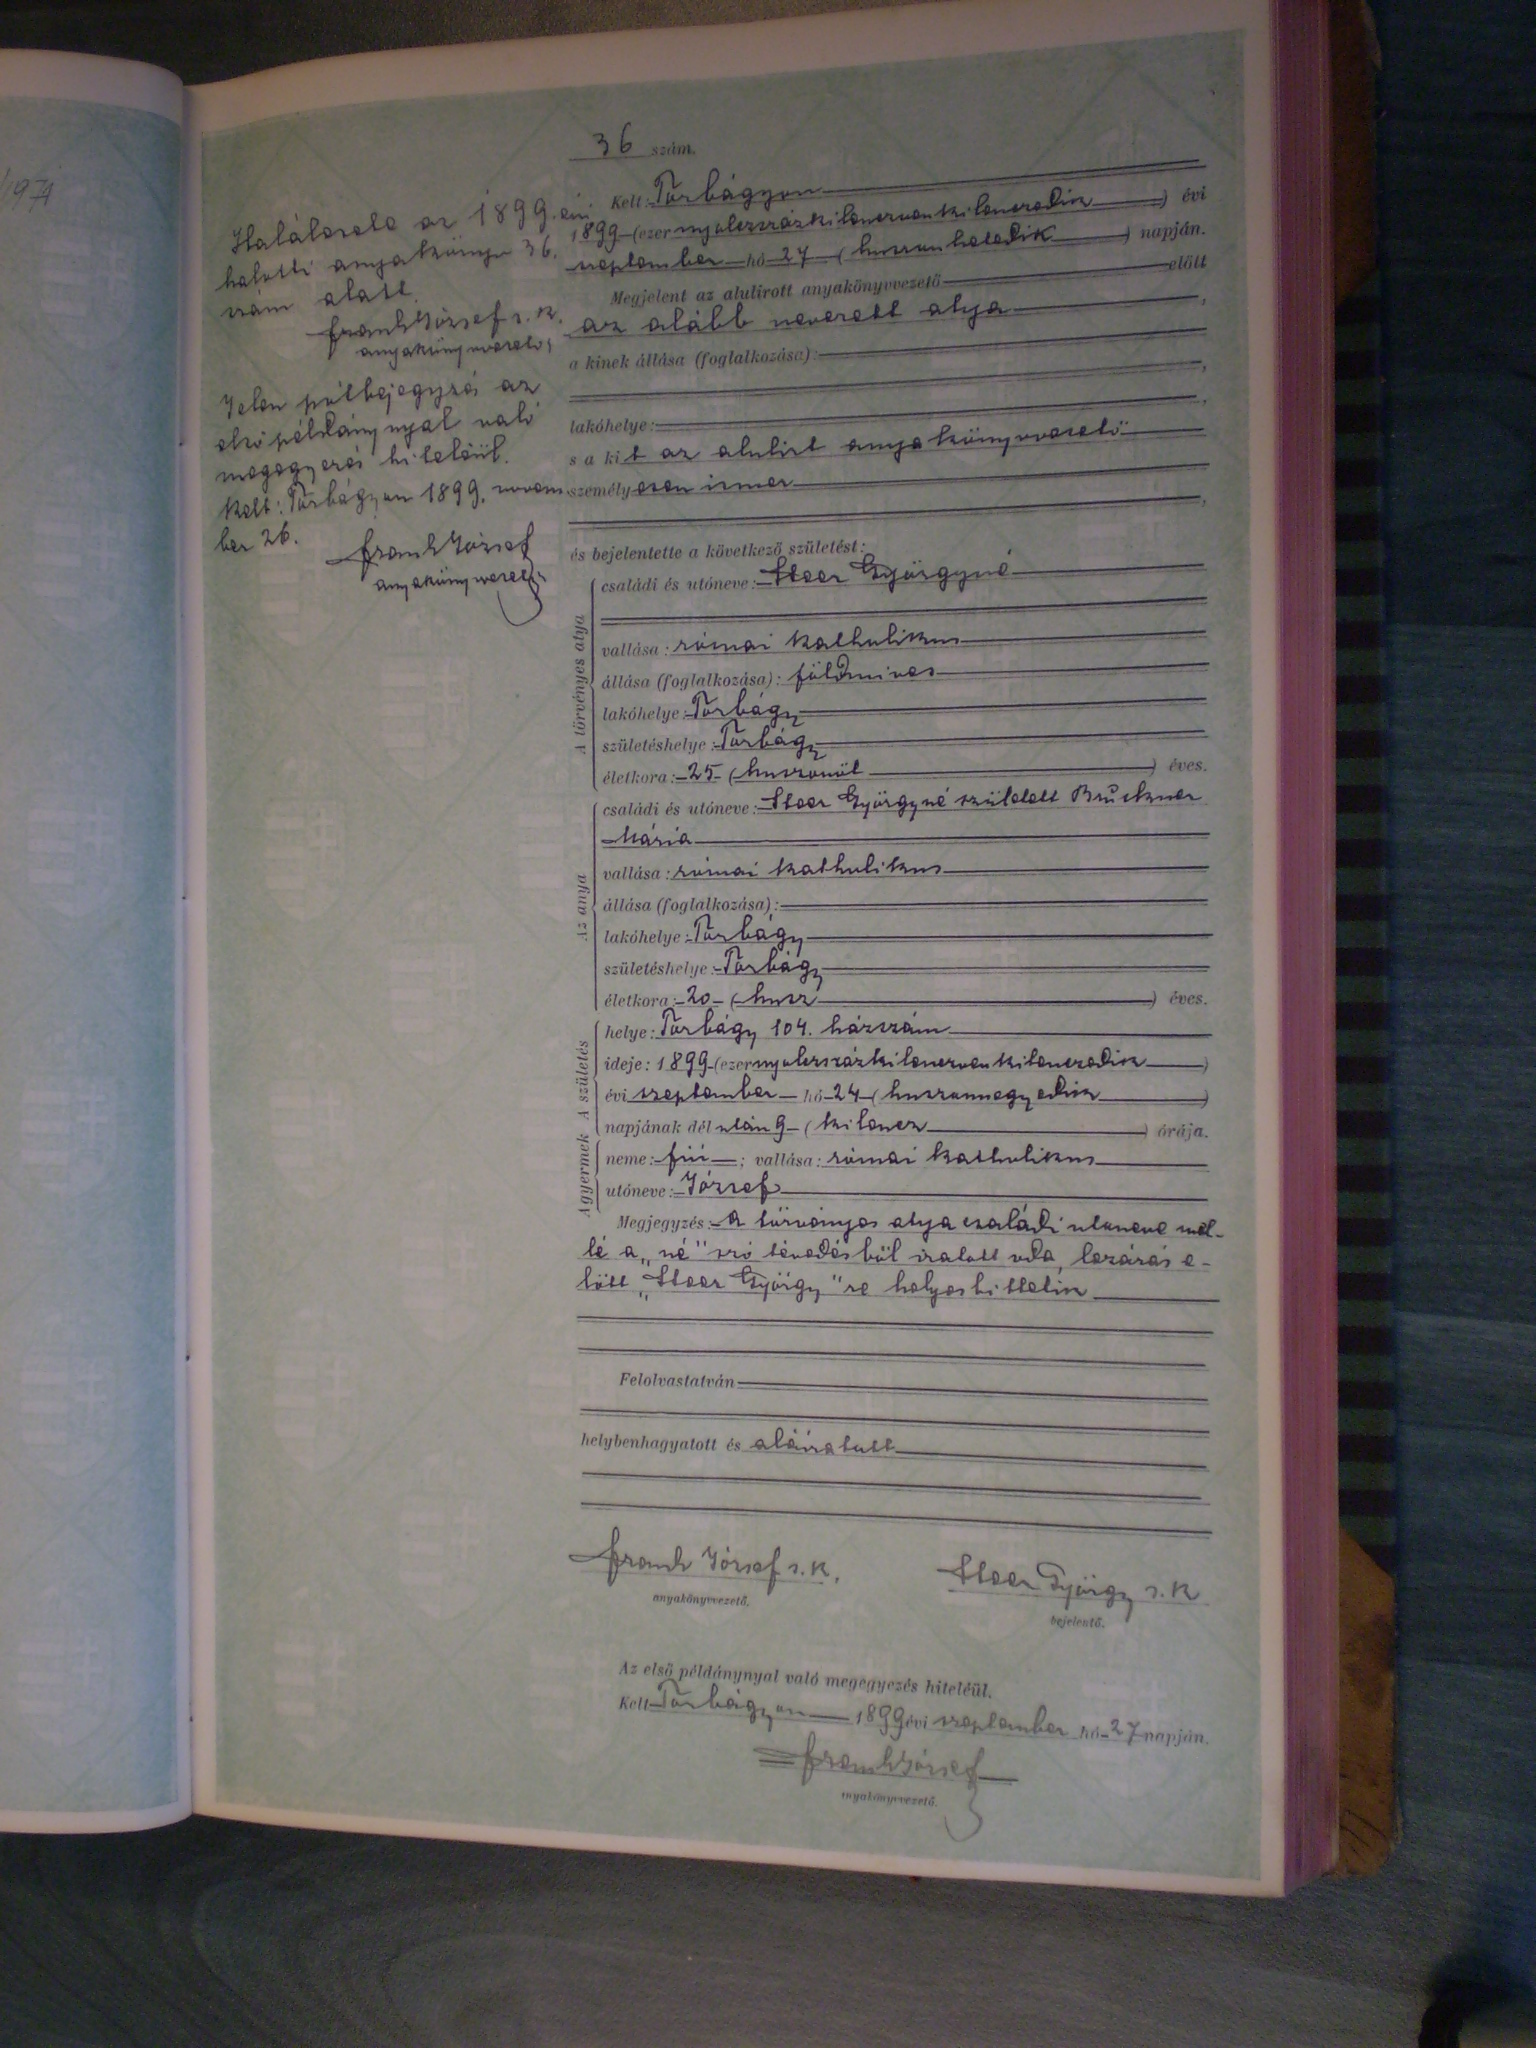 1971
36 szám.
Kelt: Torbágyon
1899 (ezernyolczszázkilenczvenkilenczedik) évi
szeptember hó 27 (huszonhetedik) napján.
Megjelent az alulirott anyakönyvvezető előtt
az alább nevezett atya,
a kinek állása (foglalkozása):
lakóhelye:
s a kit az alulirt anyakönyvvezető
személyesen ismer
és bejelentette a következő születést:
A törvényes atya
családi és utóneve: Steer Györgyné
vallása: római katholikus
állása (foglalkozása): földmives
lakóhelye: Torbágy
születéshelye: Torbágy
életkora: 25 (huszonöt) éves.
Az anya
családi és utóneve: Steer Györgyné született Bruckner
Mária
vallása: római katholikus
állása (foglalkozása):
lakóhelye: Torbágy
születéshelye: Torbágy
életkora: 20 (husz) éves.
A születés
helye: Torbágy 104. házszám
ideje: 1899 (ezernyolczszázkilenczvenkilenczedik)
évi szeptember hó 24 (huszonnegyedik)
napjának dél után 9 (kilencz) órája.
A gyermek
neme: fiú; vallása: római katholikus
utóneve: József
Megjegyzés: A törvényes atya családi utoneve mel-
lé a "né" szó tévedésből iratott oda, lezárás e-
lőtt "Steer György"re helyesbittetik
Felolvastatván
helybenhagyatott és aláiratott
Frank József s. k.
anyakönyvvezető.
Steer György s. k
bejelentő.
Az első példánynyal való megegyezés hiteléül.
Kelt Torbágyon 1899 évi szeptember hó 27 napján.
Frank József
anyakönyvvezető.
Halálesete az 1899. évi
halotti anyakönyv 36.
szám alatt.
Frank József s. k.
anyakönyvvezető
Jelen pótbejegyzés az
első példánynyal való
megegyezés hiteléül.
Kelt: Torbágyon 1899. novem
ber 26.
Frank József
anyakönyvvezető